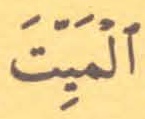 ٱلْمَيِّتَ